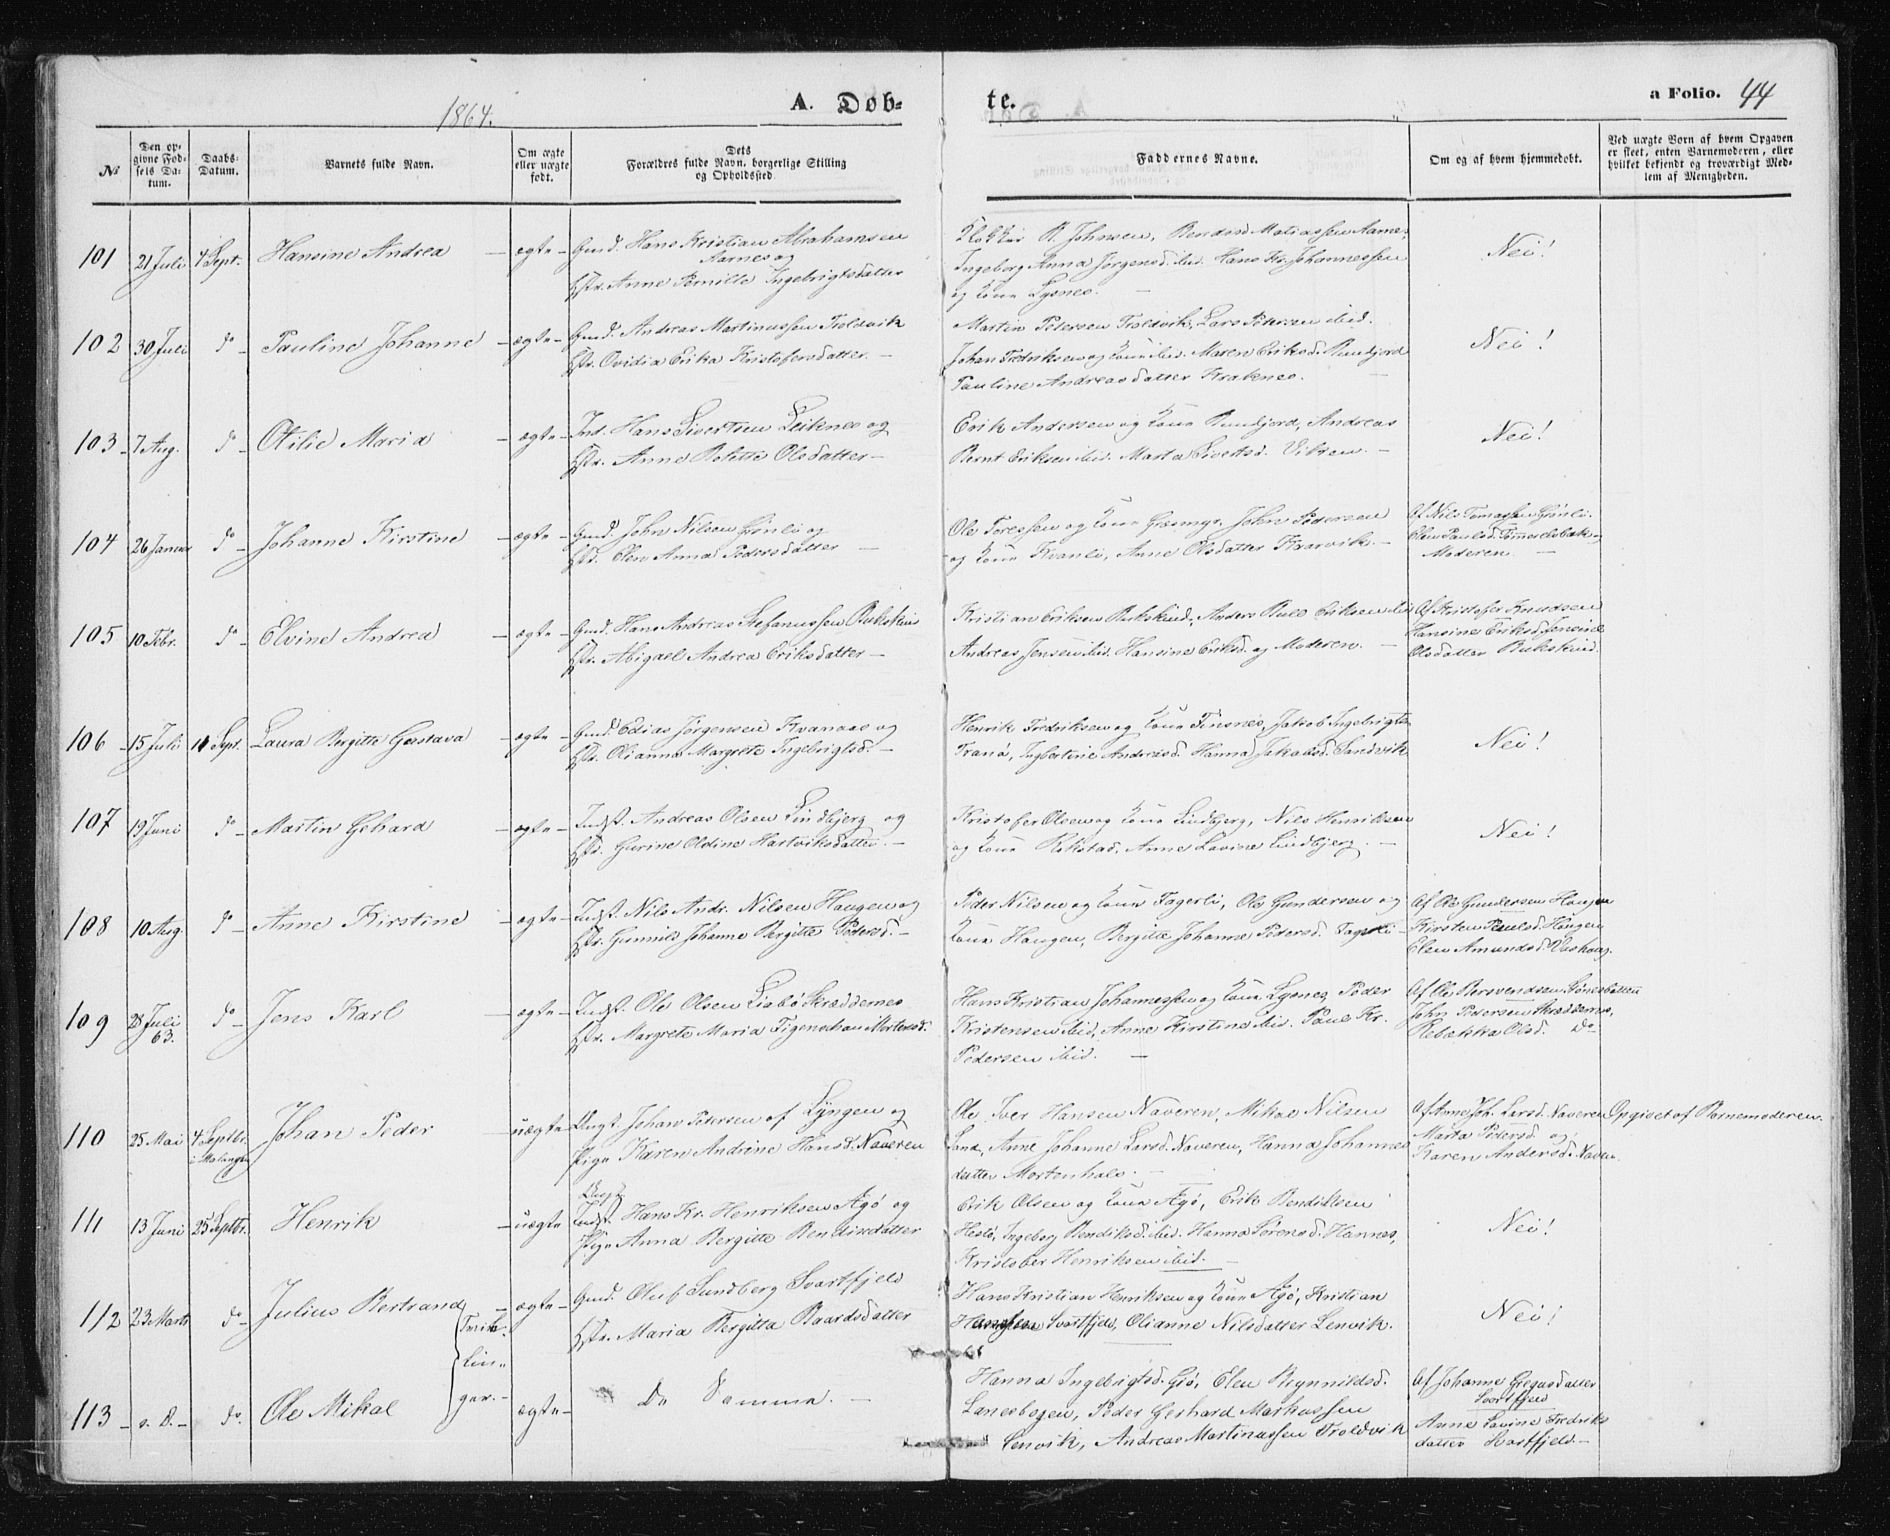 1864.
A. Døb-
te.
a Folio. 44
No
Den op-
givne Fød-
sels Da-
tum.
Daabs-
Datum.
Barnets fulde Navn.
Om ægte
eller uægte
født.
Dets
Forældres fulde Navn, borgerlige Stilling
og Opholdssted.
Faddernes Navne.
Om og af hvem hjemmedøbt.
Ved uægte Børn af hvem Opgaven
er skeet, enten Barnemoderen, eller
hvilket bekjendt og troværdigt Med-
lem af Menigheden.
101 21 Juli 4 Sept. Hansine Andrea - ægte - Gmd. Hans Kristian Abrahamsen
Aarnes og
Hstr. Anne Pernille Ingebrigtsdatter
Klokker B. Johnsen, Bendix Matiassen Aarnes,
Ingeborg Anna Jørgensd. ibid. Hans Kr. Johannessen
og Kone Lysnes. -
Nei!
102 30 Juli do - Pauline Johanne - ægte - Gmd. Andreas Martinussen Troldvik
Hstr. Ovidia Erika Kristofersdatter. -
Martin Petersen Troldvik, Lars Petersen ibid.
Johan Fredriksen og Kone ibid. Maren Eriksd. Rundjord
Pauline Andreasdatter Kraknes.
Nei!
103 - 7 Aug. do - Otilie Maria - ægte - Ind. Hans Sivertsen Leiknes og
Hstr. Anne Bolette Olsdatter -
Erik Andersen og Kone Rundjord, Andreas
Bernt Eriksen ibid. Marta Sivertsd. Vikren. -
Nei!
104 26 Januar do - Johanne Kirstine - ægte - Gmd. John Nilsen Grønli og
Hstr. Elen Anna Pedersdatter -
Ole Toressen og Kone John Pedersen
og Kone Kvanli, Anne Olsdatter Kaarvik. -
Af Nils Tomassen Grønli.
Elen Paulsd. og
Moderen. -
105 10 Febr. do - Elvine Andrea - ægte - Gmd. Hans Andreas Stefanussen Bukskind
Hstr. Abigael Andrea Eriksdatter -
Kristian Eriksen Bukskind, Anders Eriksen ibid
Andreas Jensen ibid. Hansine Eriksd. og Moderen. -
Af Kristofer Knudsen
Hansine Eriksd.
Olsdatter Bukskind.
106 - 15 Juli 11 Sept. Laura Bergitte Gustava - ægte - Gmd. Edias Jørgensen Kvanaas og
Hstr. Olianna Margrete Ingebrigtsd. -
Henrik Fredriksen og Kone Finsnes, Jakob Ingebrigts.
Tranø, Ingbertine Andreasd. Hanna Jakobsd. Sandvik
Nei!
107 19 Juni do - Martin Gehard - ægte - Indst. Andreas Olsen Lindbjerg og
Hstr. Gurine Oldine Hartviksdatter. -
Kristofer Olsen og Kone Lindbjerg, Nils Henriksen
og Kone Rikstad, Anne Lovine Lindbjerg. -
Nei!
108 10 Aug. do - Anne Kirstine - ægte - Indst. Nils Andr. Nilsen Haugen og
Hstr. Gunnild Johanna Bergitte Pedersd. -
Peder Nilsen og Kone Fagerli, Ole Gundersen og
Kone Haugen, Bergitte Johanne Pedersd. Fagerli -
Af Ole Gundersen Haugen
Kirsten Paulsd. Haugen
Elen Amundsd. Vashaug.
109 28 Juli 63. do - Jens Karl - ægte - Indst. Ole Olsen Liabø Skræddernes
Hstr. Margrete Maria Figenschau Mortensd.
Hans Kristian Johannessen og Kone Lysnes, Peder
Kristensen ibid, Anne Kirstine ibid. Paul Kr.
Pedersen ibid. -
Af Ole Bersvendsen
John Pedersen Skræddernes,
Rebækka Olsd. Do
110 25 Mai 4 Septbr. i Malangen Johan Peder - uægte - Ungk. Johan Petersen af Lyngen og
Pige Karen Andrine Hansd. Naveren
Ole Iver Hansen Naveren, Mikal Nilsen
Sand, Anne Johanne Larsd. Naveren, Hanna Johannes
datter Mortenhals. -
Af Anne Joh. Larsd. Naveren
Marta Pedersd. og
Karen Andersd. Naveren.
Opgivet af Barnemoderen.
111 13 Juni 25 Septbr. Henrik - uægte Ungk.
Indst. Hans Kr. Henriksen Agø og
Pige Anna Bergitte Bendiksdatter
Erik Olsen og Kone Agø, Erik Bendiktsen
Hestø, Ingeborg Bendiksd. ibid. Hanna Sørensd. Hannes,
Kristofer Henriksen ibid. -
Nei!
112 23 Marts do - Julius Bertrand - ægte - Gmd. Oluf Sundberg Svartfjeld
Hstr. Maria Bergitta Baardsdatter
Tvil-
lin-
ger. -
Hans Kristian Henriksen og Kone Agø, Kristian
Hansen Svartfjeld, Olianne Nilsdatter Lenvik.
Nei!
113 - s. D. - do. Ole Mikal ægte - De Samme. -
Hanna Ingebrigtsd. Giø, Elen Brynnildsd.
Lanesbogen, Peder Gerhard Markussen
Lenvik, Andreas Martinussen Troldvik
Af Johanne Gregusdatter
Svartfjeld
Anne Lovine Fredriks
datter Svartfjeld -